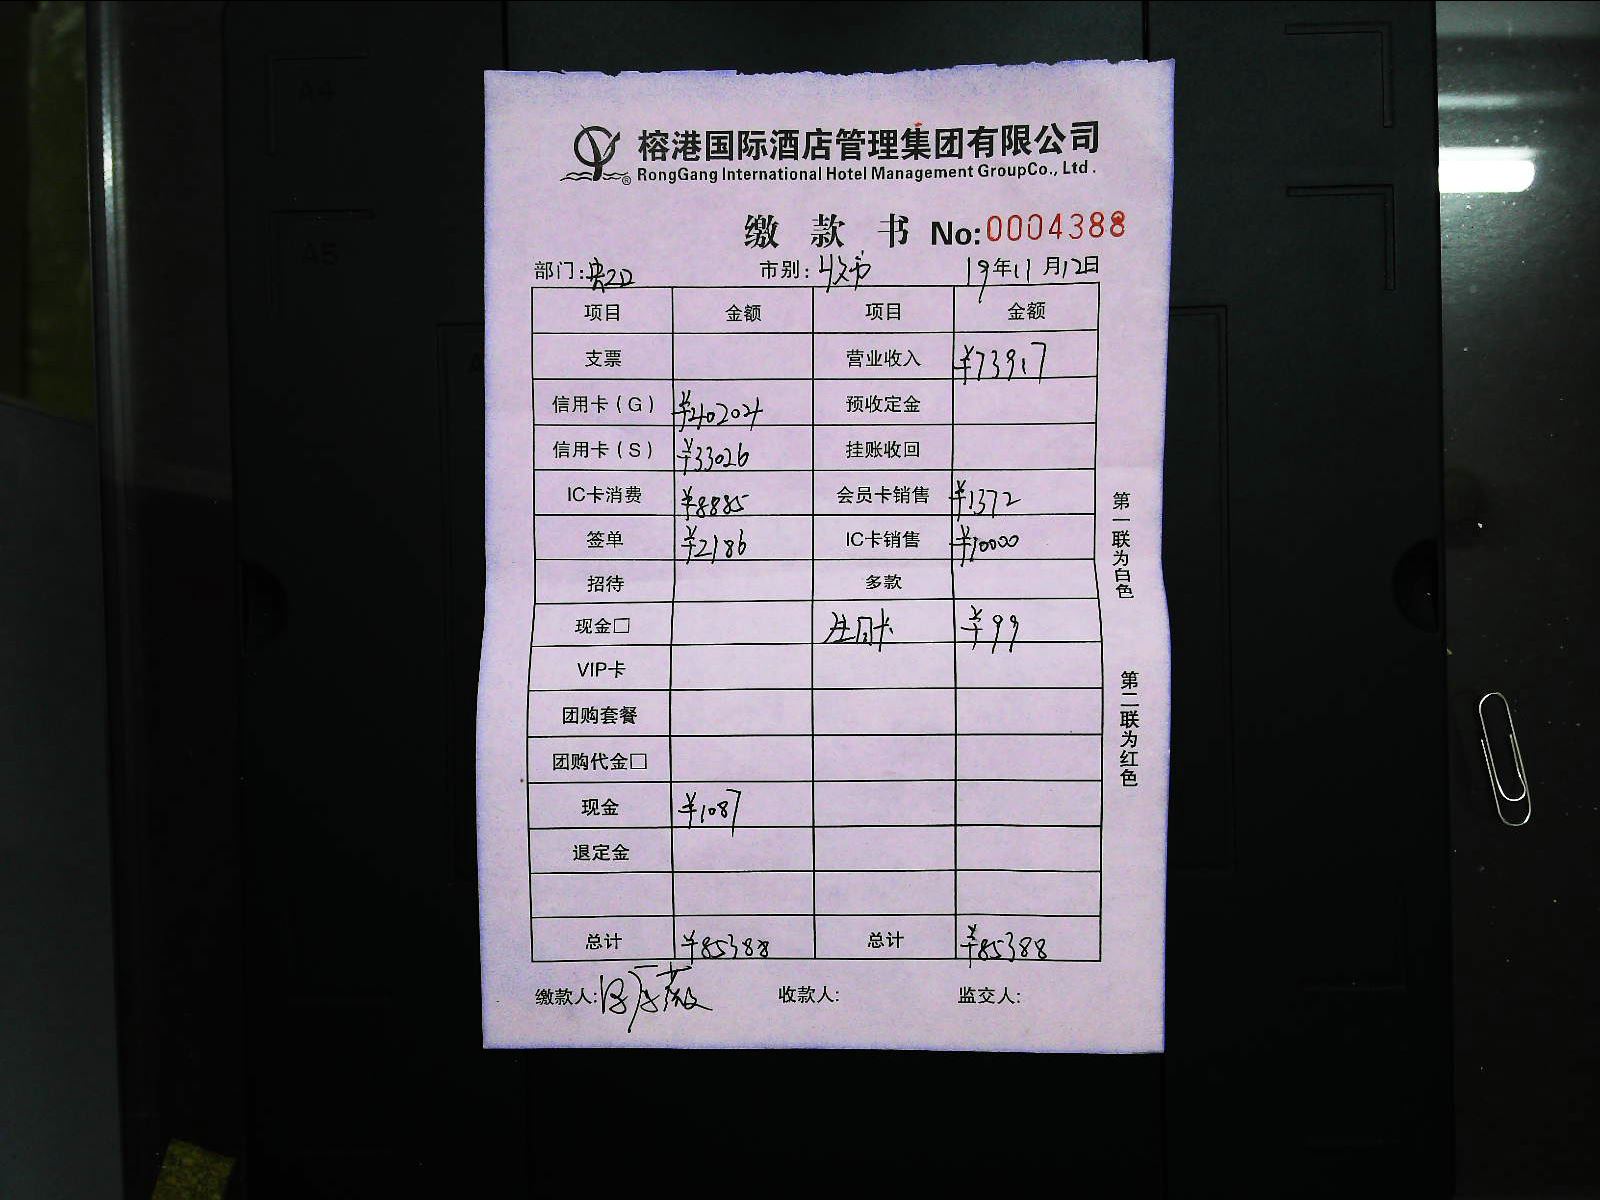 A4
A5
榕港国际酒店管理集团有限公司
RongGang International Hotel Management GroupCo., Ltd.
缴款书 No:0004388
部门: 市别: 19年11月12日
项目 金额 项目 金额
支票 营业收入 ¥73917
信用卡(G) ¥40204 预收定金
信用卡(S) ¥33026 挂账收回
IC卡消费 ¥8885 会员卡销售 ¥1372
签单 ¥2186 IC卡销售 ¥10000
招待 多款
现金□ 生日卡 ¥99
VIP卡
团购套餐
团购代金□
现金 ¥1087
退定金
总计 ¥85388 总计 ¥85388
缴款人: 收款人: 监交人:
第一联为白色
第二联为红色